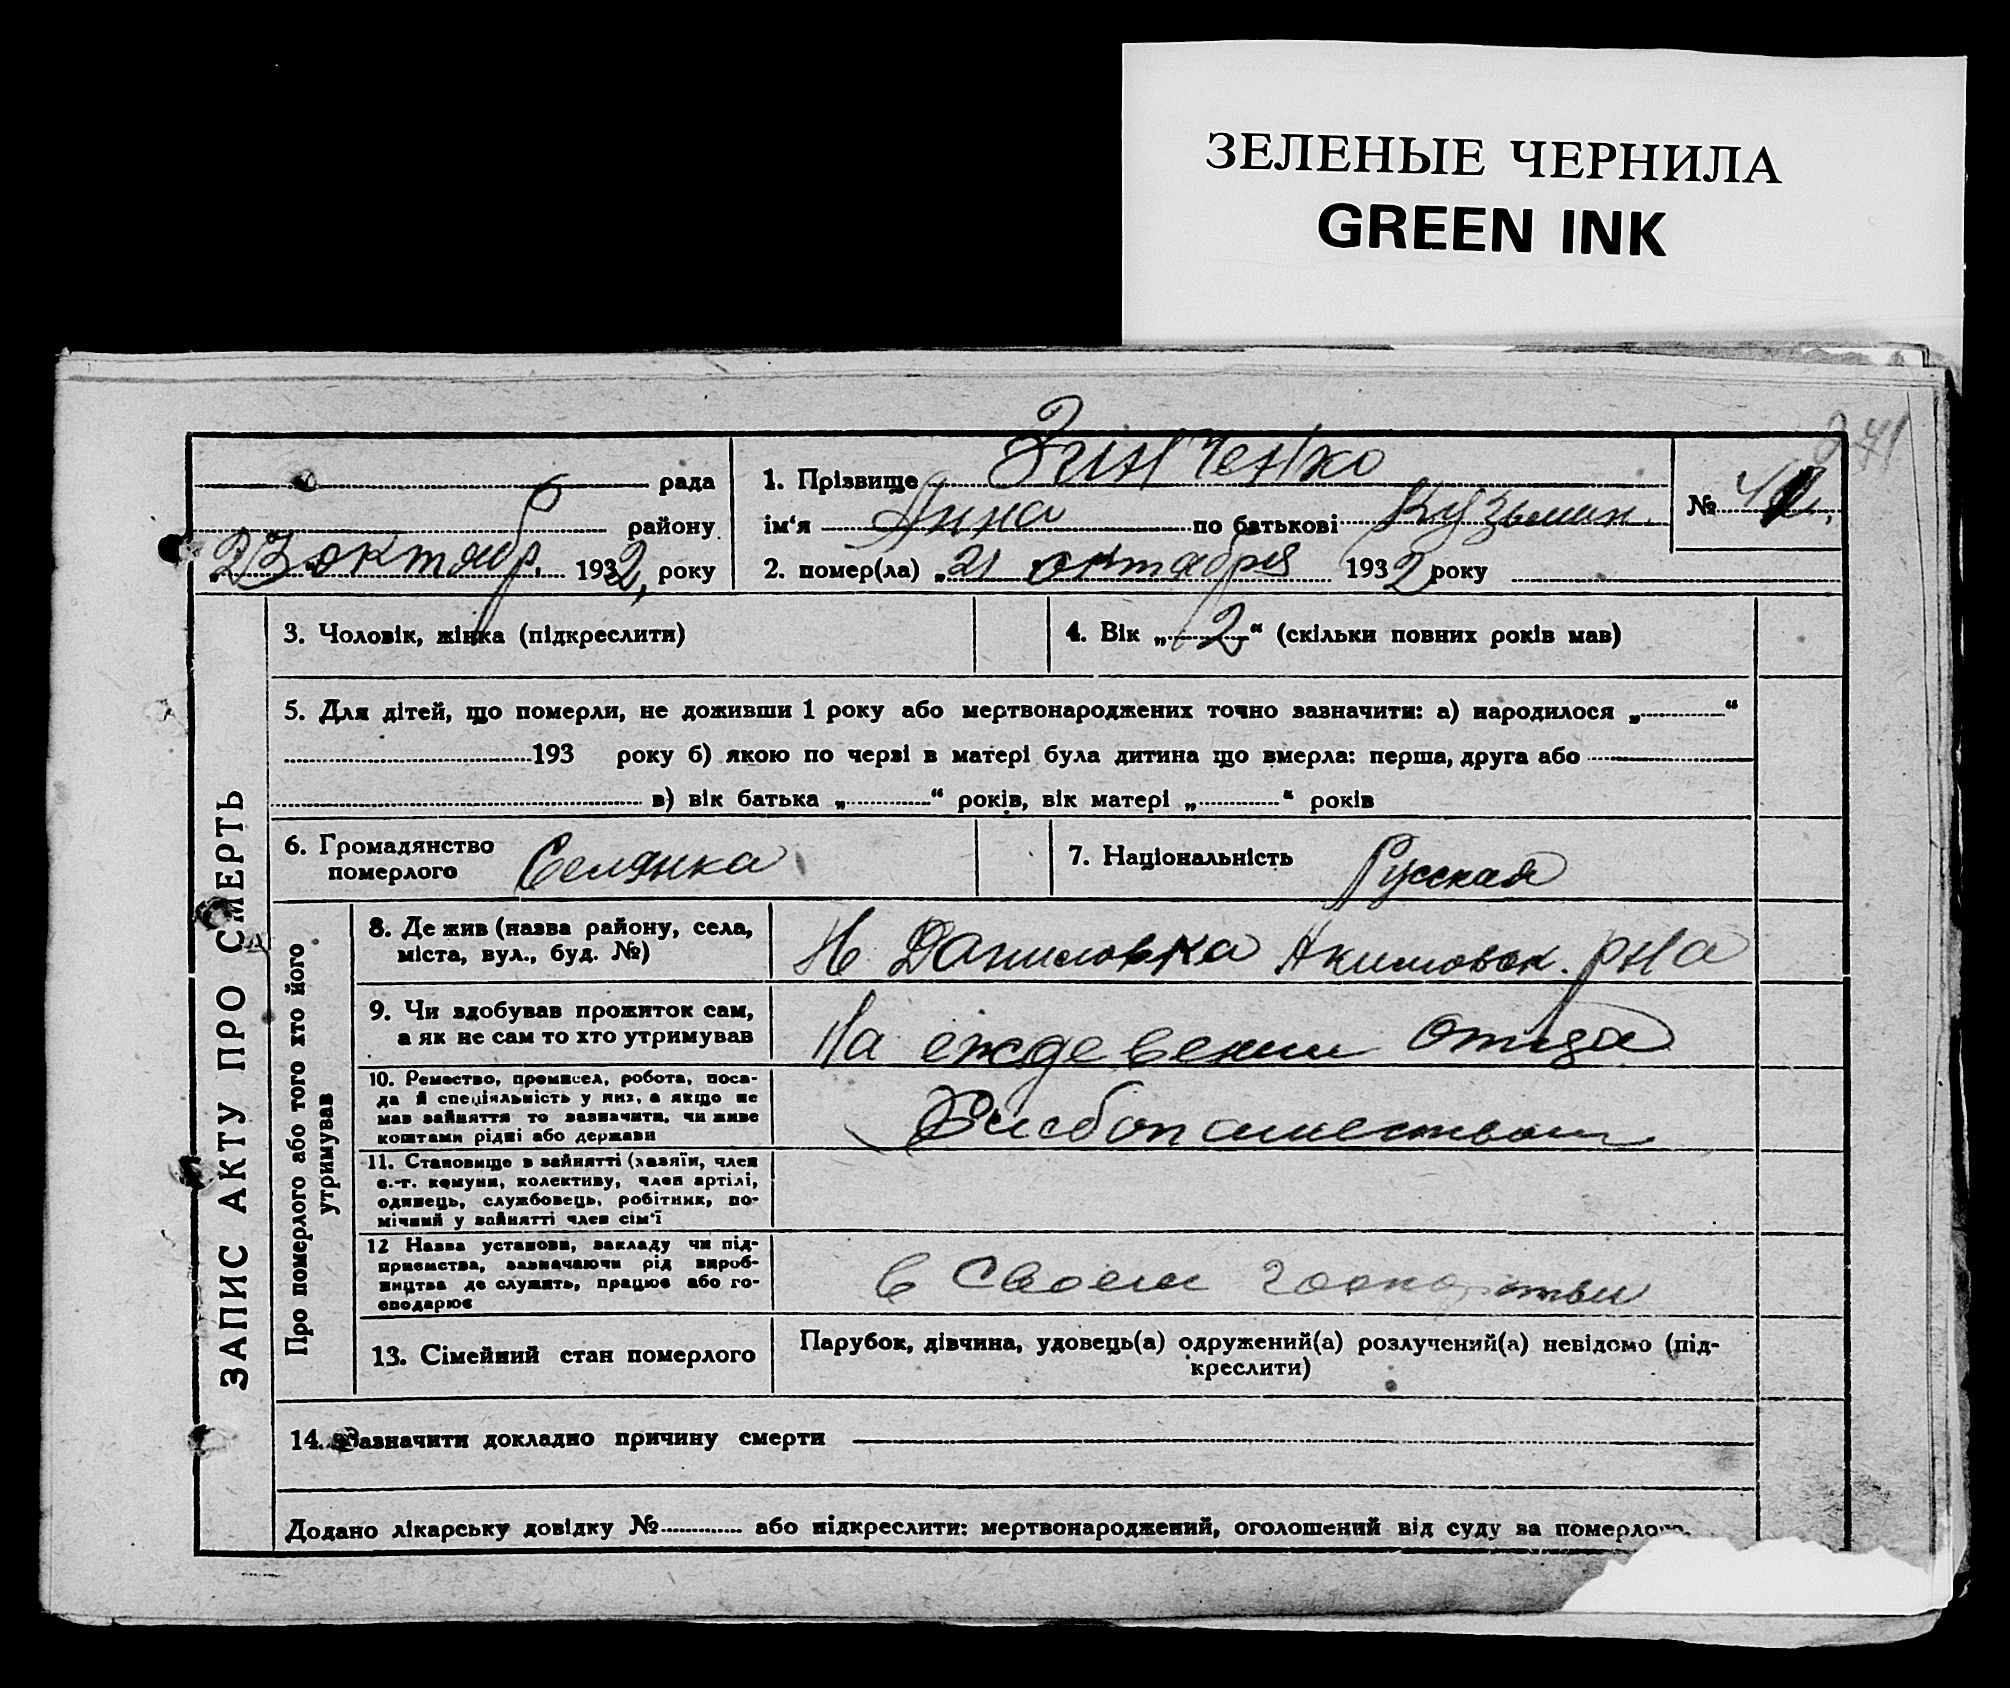 ЗЕЛЕНЫЕ ЧЕРНИЛА
GREEN INK
271
рада
району
23 октябр. 1932, року
1. Прізвище Зинченко
ім‘я Анна по батькові Кузьмин.
2. помер(ла) „21 октября 1932 року
№
ЗАПИС АКТУ ПРО СМЕРТЬ
3. Чоловік, жінка (підкреслити)
4. Вік „2“ (скільки повних років мав)
5. Для дітей, що померли, не доживши 1 року або мертвонароджених точно зазначити: а) народилося „ “
193 року б) якою по черзі в матері була дитина що вмерла: перша, друга або
в) вік батька „ “ років, вік матері „ “ років
6. Громадянство
померлого Селянка
7. Національність Русская
Про померлого або того хто його
утримував
8. Де жив (назва району, села,
міста, вул., буд. №)
Н Даниловка Акимовск. рна
9. Чи здобував прожиток сам,
а як не сам то хто утримував
На иждевении отца
10. Ремество, промисел, робота, поса-
да й спеціяльність у них, а якщо не
мав зайняття то зазначити, чи живе
коштами рідні або держави
Хлебопашеством
11. Становище в зайнятті (хазяїн, член
с.-г. комуни, колективу, член артілі,
одинець, службовець, робітник, по-
мічний у зайнятті член сім‘ї
12 Назва установи, закладу чи під-
приємства, зазначаючи рід вироб-
ництва де служить, працює або го-
сподарює
в своем
13. Сімейний стан померлого
Парубок, дівчина, удовець(а) одружений(а) розлучений(а) невідомо (під-
креслити)
14. Зазначити докладно причину смерти
Додано лікарську довідку № або підкреслити: мертвонароджений, оголошений від суду за померлого.